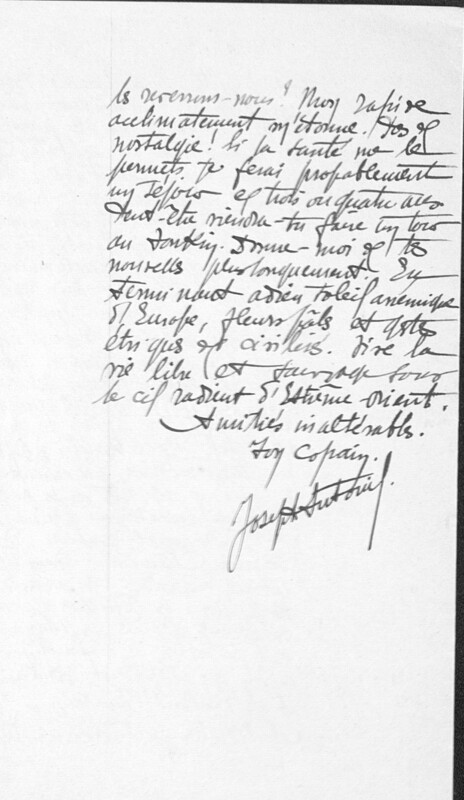 les reverrons-nous? Mon rapide
acclimatement m'étonne. Pas de
nostalgie! Si ma santé me le
permets je ferai propablement
un séjour de trois ou quatre ans
Peut-être viendra-tu faire un tour
au Tonkin. Donne-moi de tes
nouvelles plus longuement. En
terminant adieu soleil anémique
d'Europe, fleurs pâles et gestes
étriqués de civilisés. Vive la
vie libre et sauvage sous
le ciel radient d'Extrême-orient.
Amitiés inaltérables.
Ton Copain.
Joseph